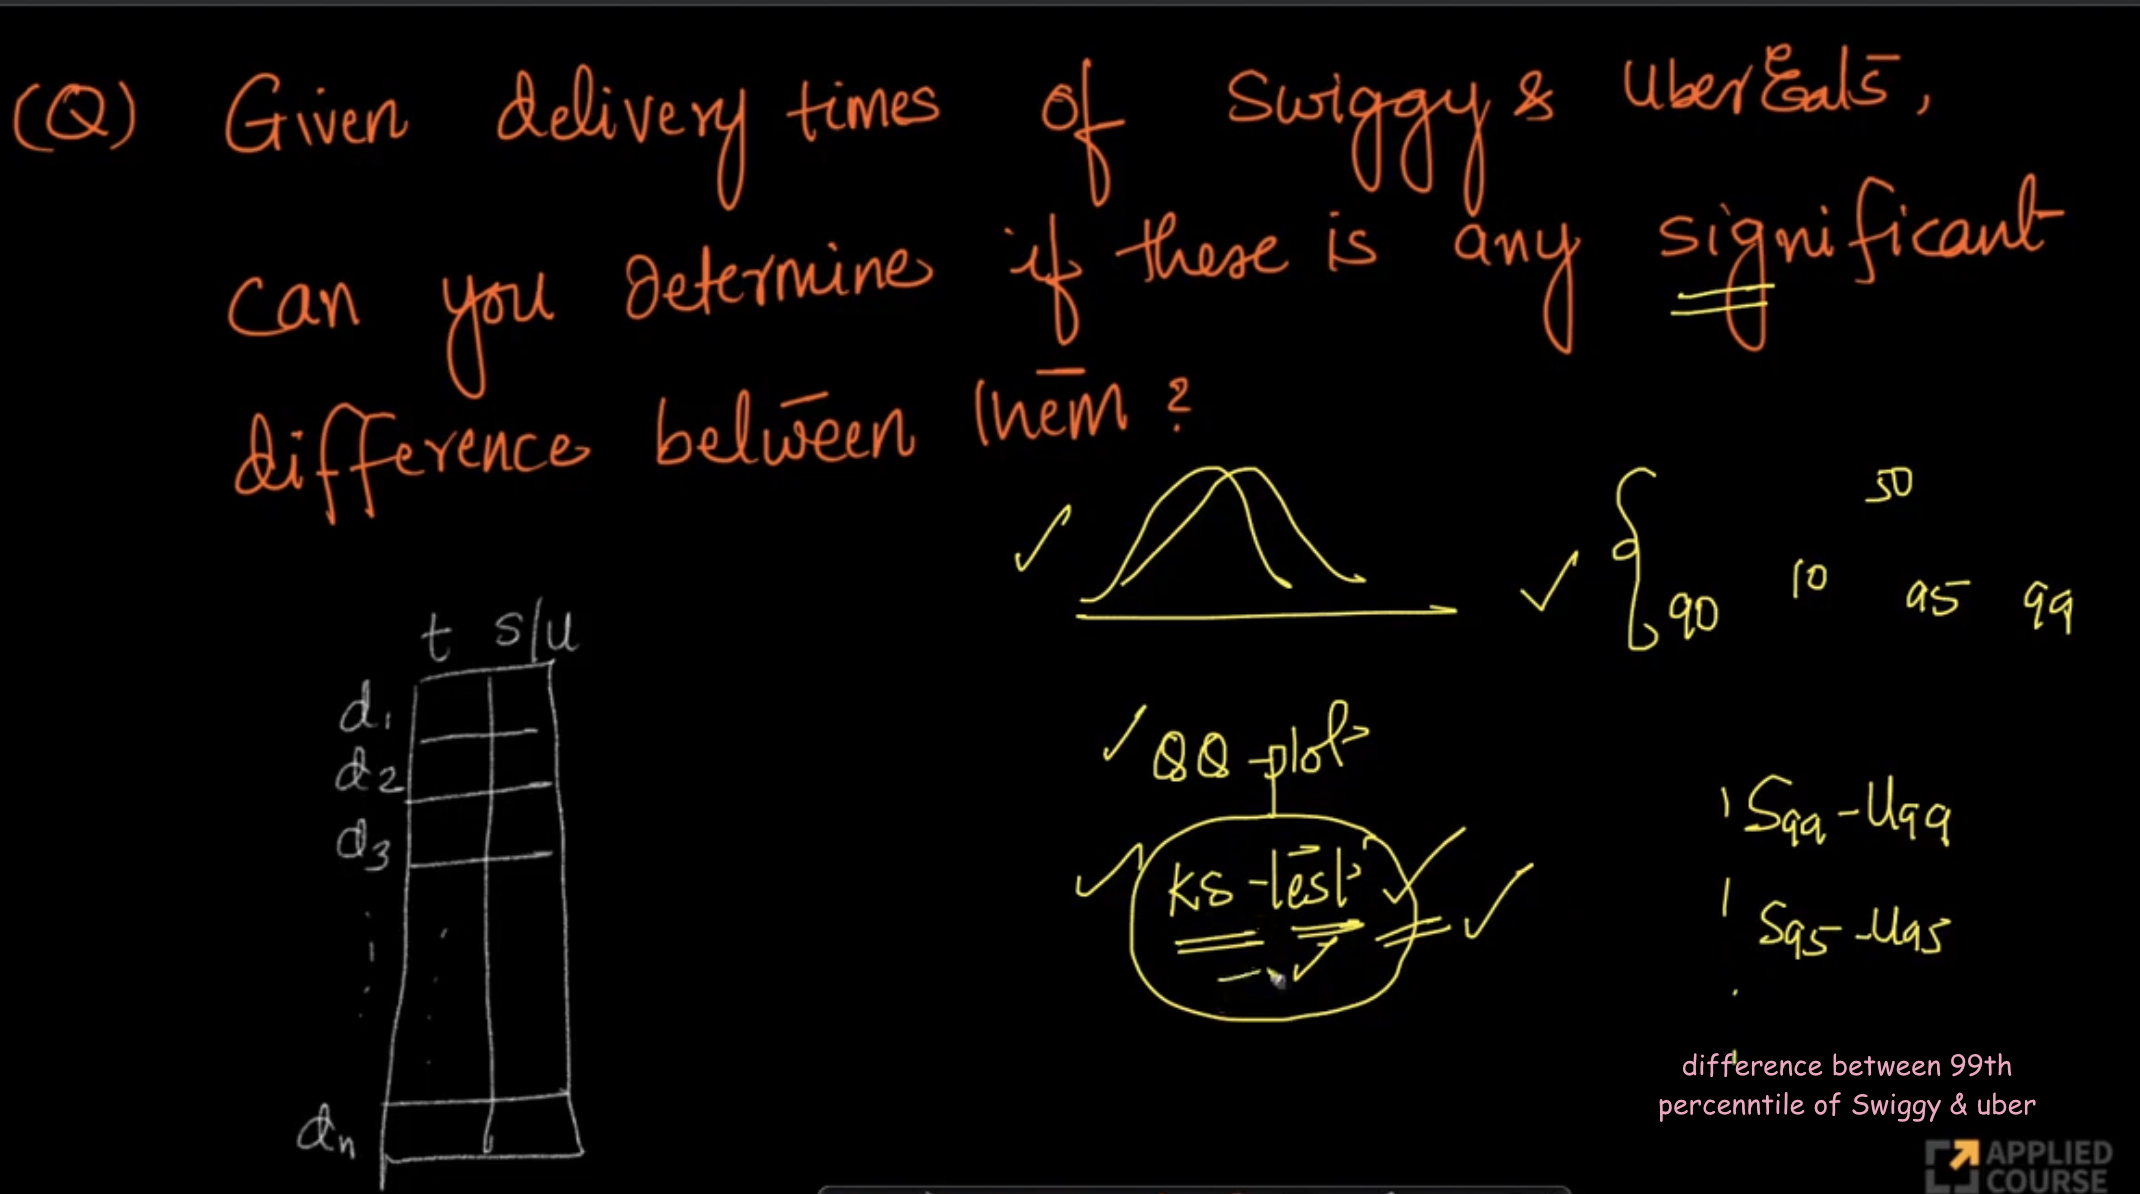 (Q) Given delivery times of Swiggy & UberEats,
can you determine if there is any significant
difference between them?
50
90 10 95 99
t s/u
d1
d2
d3
dn
QQ-plot
KS-test
S99 - U99
S95 - U95
difference between 99th
percenntile of Swiggy & uber
APPLIED
COURSE